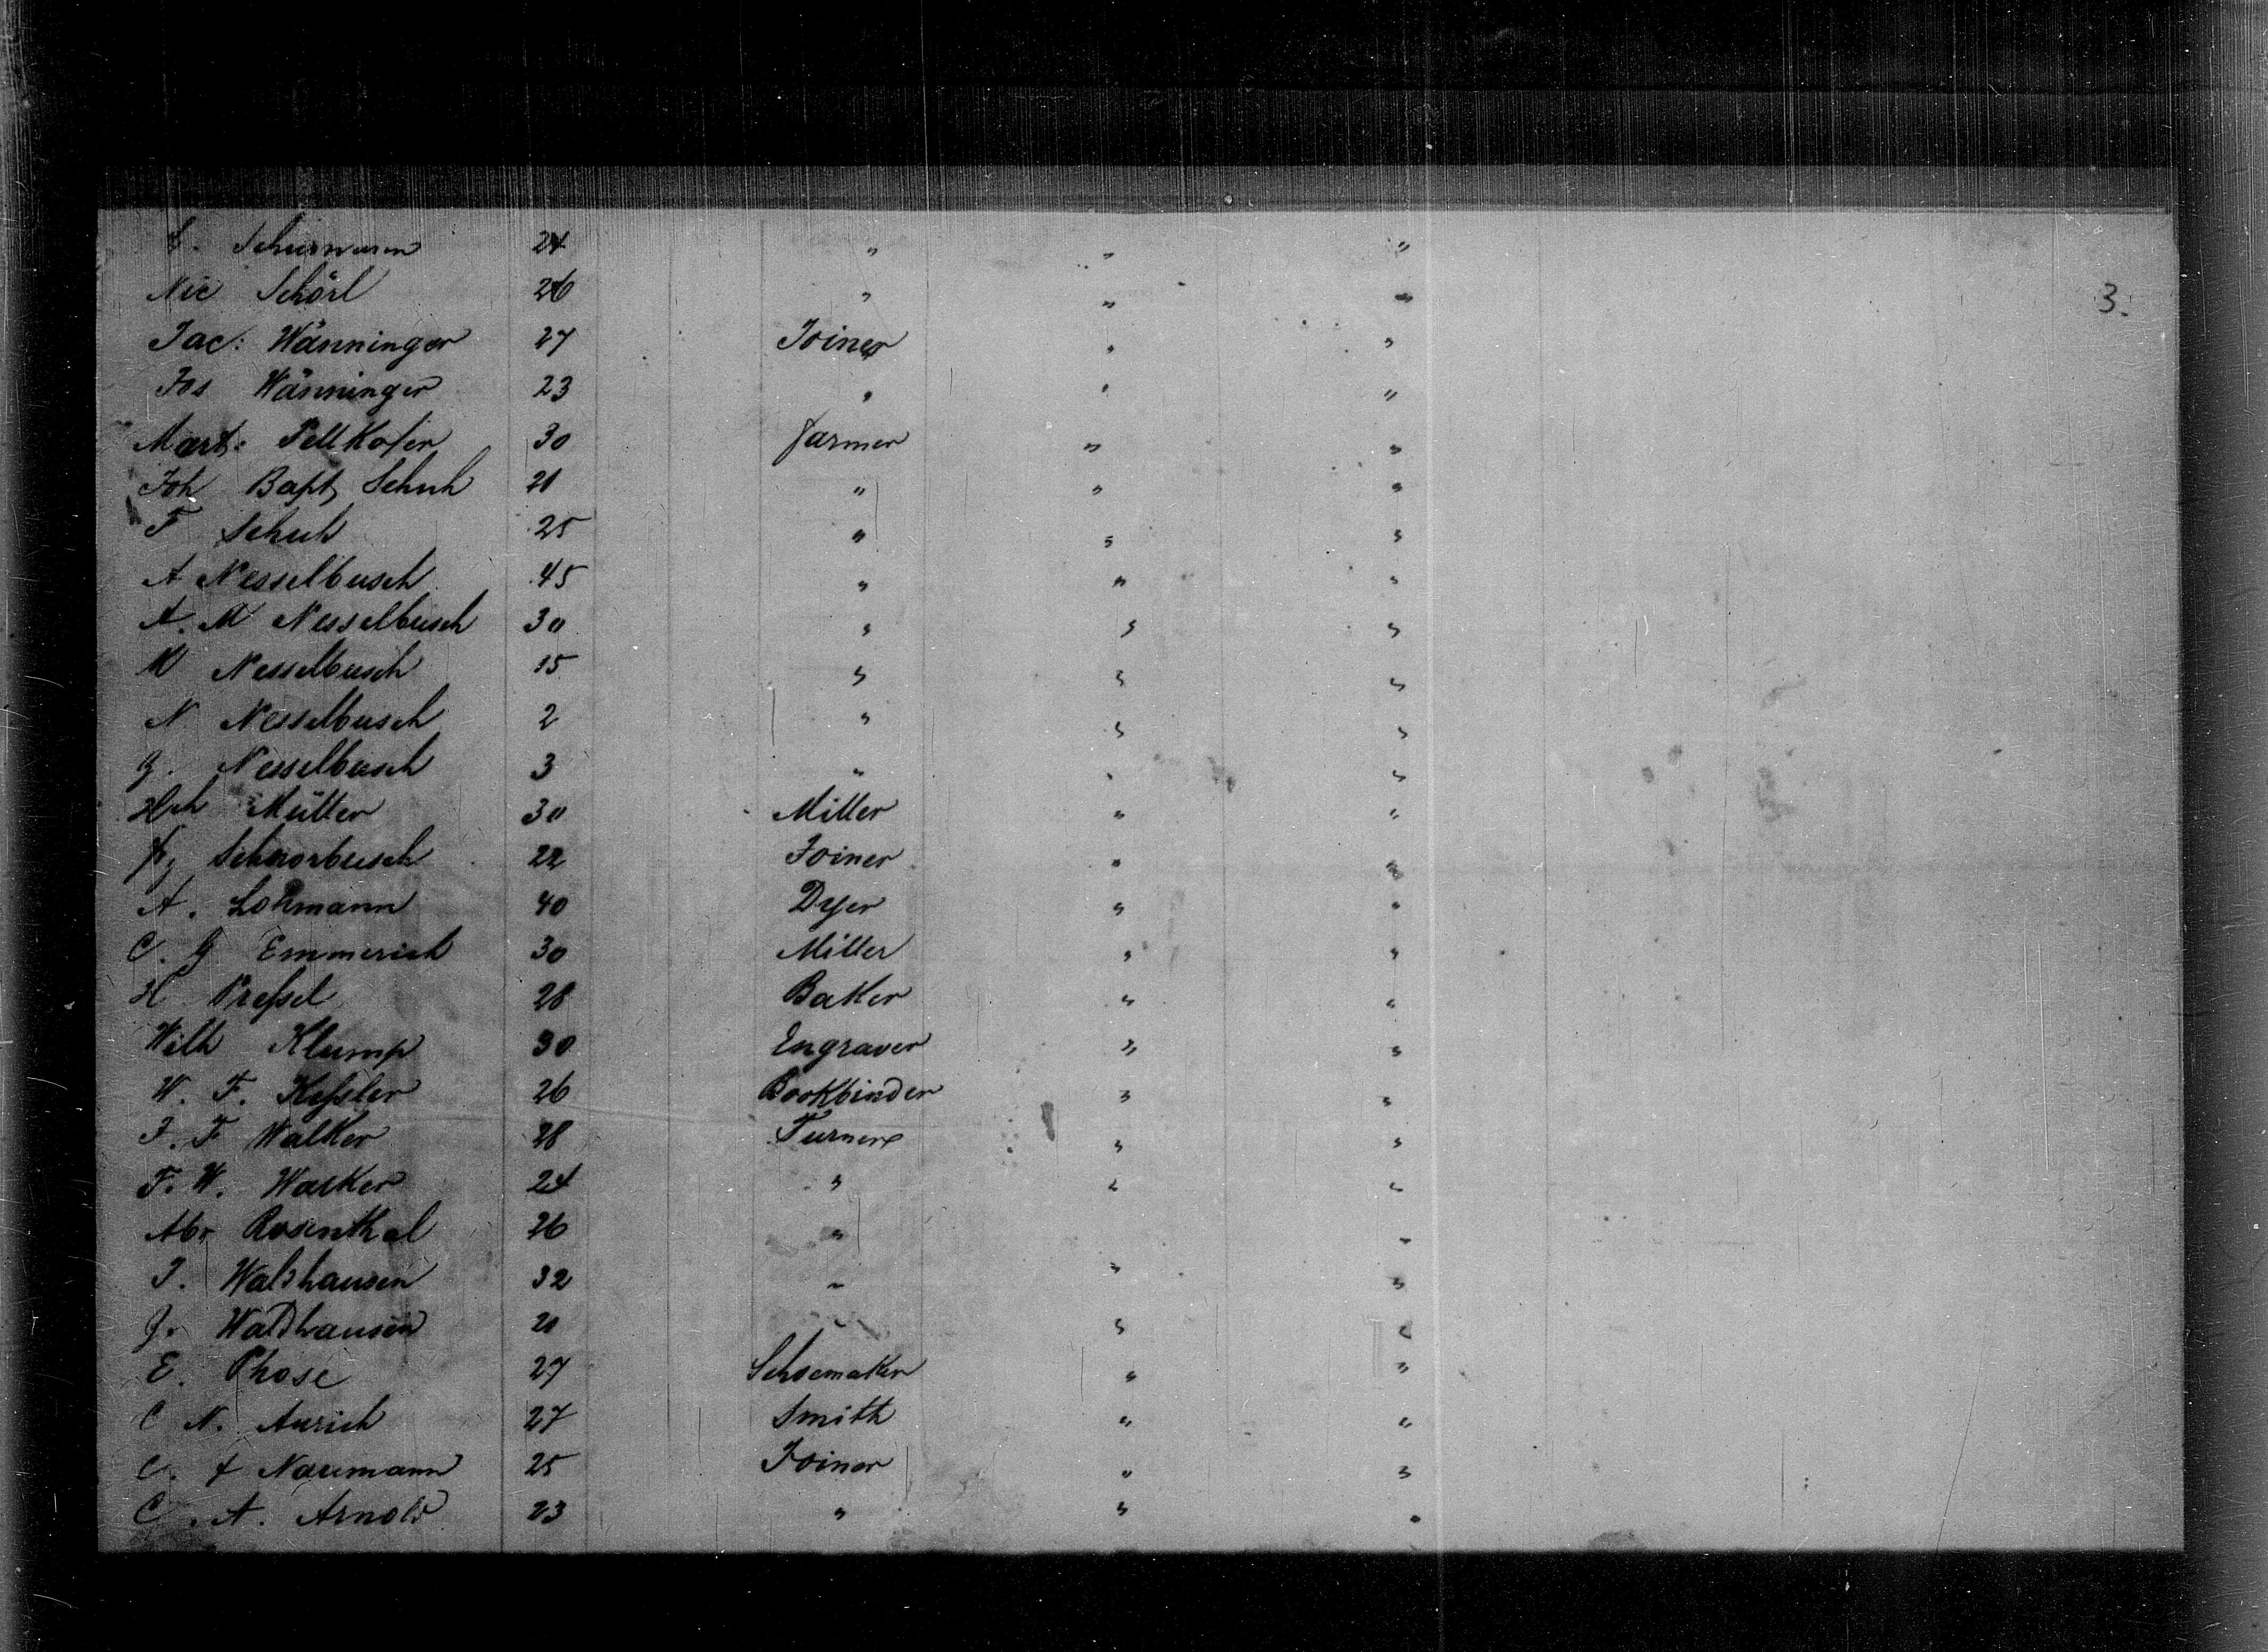 Schurmann 24 " " "
Nic Schörl 26 " " "
3.
Jac: Wänninger 27 Joiner " "
Jos Wänninger 23 " " "
Mart: Pellkofer 30 farmer " "
Joh Bapt Schuh 21 " " "
F Schuh 25 " " "
A Nesselbusch 45 " " "
A. M Nesselbusch 30 " " "
M Nesselbusch 15 " " "
N Nesselbusch 2 " " "
G. Nesselbusch 3 " " "
Hch Mütter 30 Miller " "
Schnorbusch 22 Joiner " "
A. Lohmann 40 Dyer " "
C. G Emmerich 30 Miller " "
H Preßel 28 Baker " "
Wilh Klump 30 Engraver " "
W. F. Keßler 26 Bookbinder " "
J. F Walker 28 Turner " "
F. W. Walker 24 " " "
Abr Rosenthal 26 " "
J. Waldhausen 32 " " "
G. Waldhausen 21 " "
E. Phose 27 Schoemaker " "
C N. Aurich 27 Smith " "
C. F Naumann 25 Joiner " "
C. A. Arnold 23 " " "